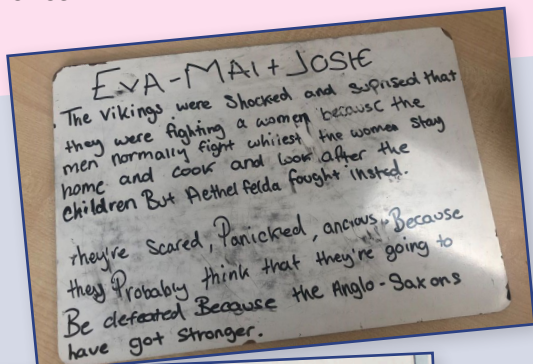 EVA-MAI + JOSIE
The Vikings were Shocked and suprised that
they were fighting a women because the
men normally fight whiiest the women stay
home and cook and look after the
children But Aethelfelda fought insted.
they're Scared, Panicked, ancious. Because
they Probably think that they're going to
Be defeated Because the Anglo-Saxons
have got Stronger.